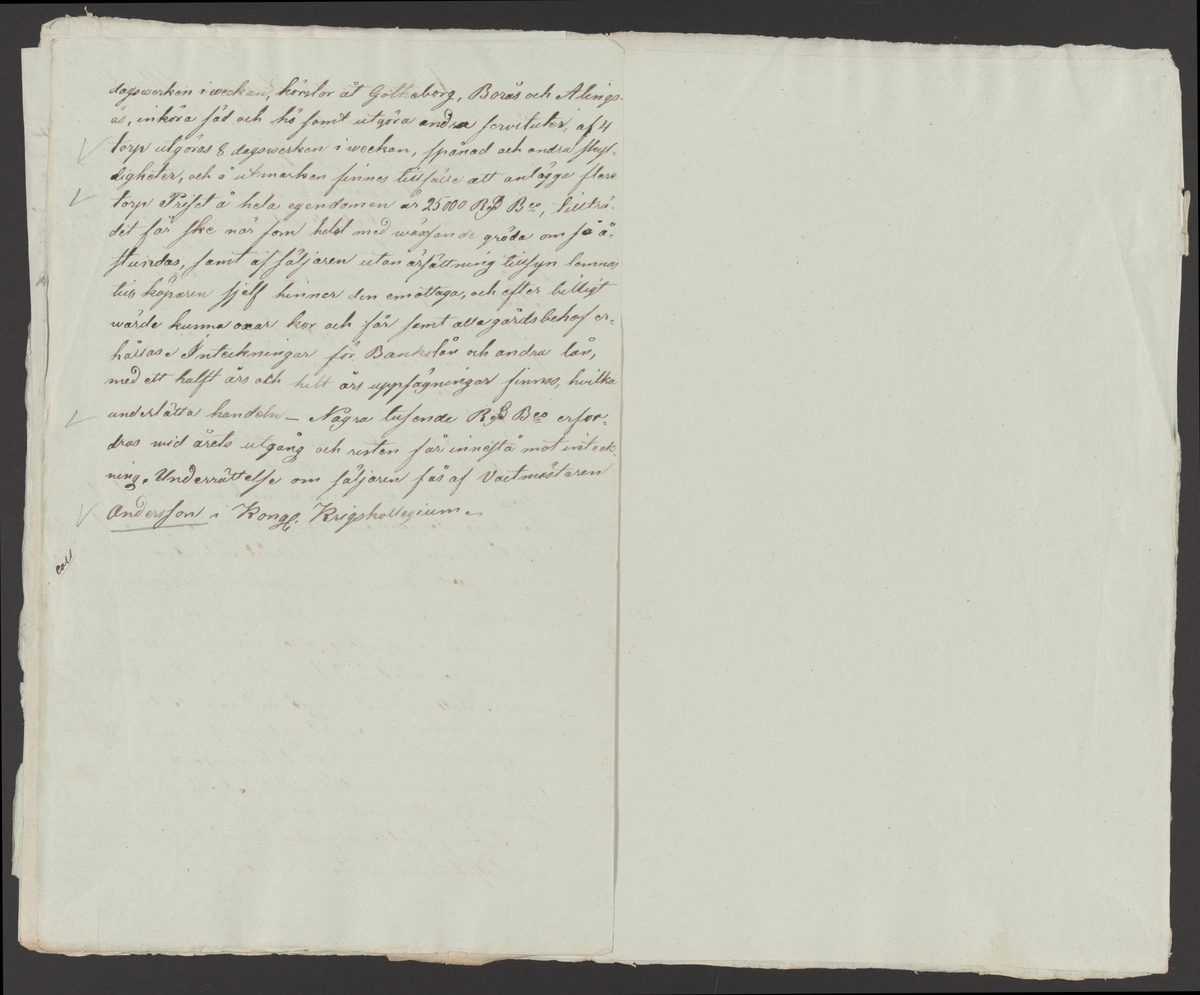 dagswerken i weckan, körslor åt Götheborg, Borås och Alings-
ås, inköra säd och hö samt utgöra andra servituter, af 4
torp utgöras 8 dagswerken i weckan, spånad och andra skyl-
digheter, och å utmarken finnes tillfälle att anlägga flere
torp Priset å hela egendomen är 25000 Rd Bco, tillträ-
det får ske när som helst med wäxande gröda om så å-
stundas, samt af säljaren utan ärsättning tillsyn lemnas
tils köparen sjelf hinner den emottaga, och efter billigt
wärde kunna oxar kor och får samt alla gårdsbehof er-
hållas. Inteckningar för Bankolån och andra lån,
med ett halft års och helt års uppsägningar finnas, hvilka
underlätta handeln – Några tusende Rd Bco erfor-
dras wid årets utgång och resten får innestå mot inteck-
ning. Underrättelse om säljaren fås af Vacktmästaren
Andersson i Kongl. Krigskollegium.
coll